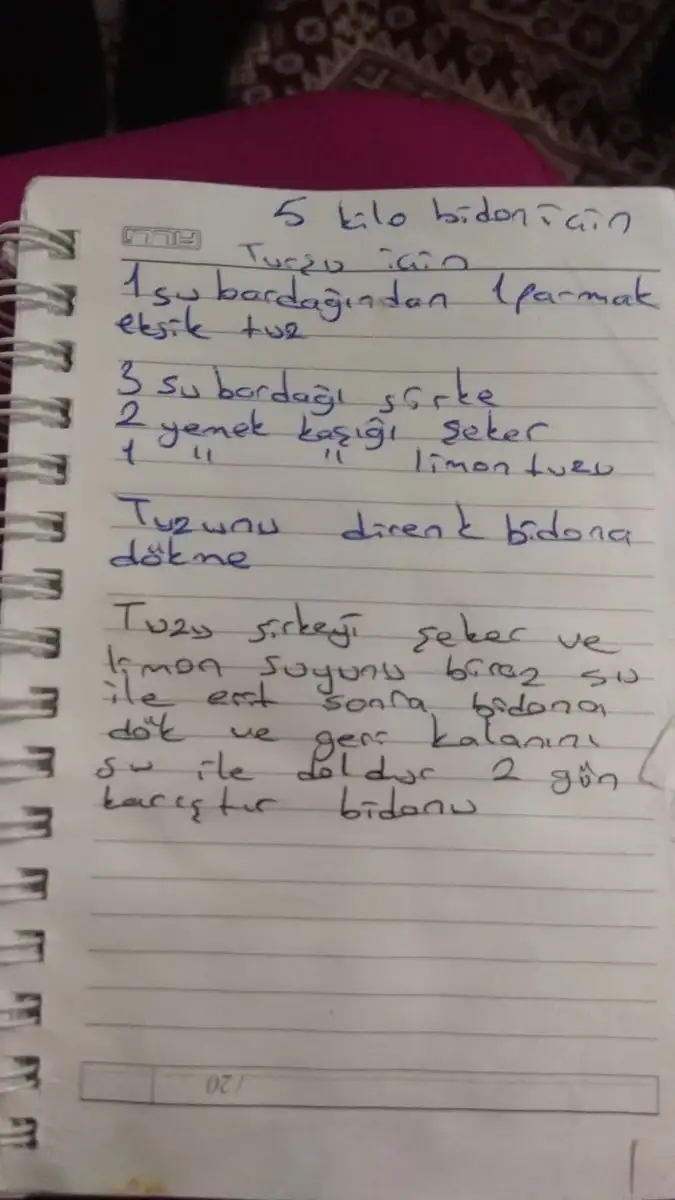 5 kilo bidon için
Turşu için
1 su bardağından 1 parmak
eksik tuz
3 su bardağı sirke
2 yemek kaşığı şeker
1 " " limon tuzu
Tuzunu direnk bidona
dökme
Tuzu sirkeyi şeker ve
limon suyunu biraz su
ile erit sonra bidona
dök ve geri kalanını
su ile doldur 2 gün
karıştır bidonu
/20